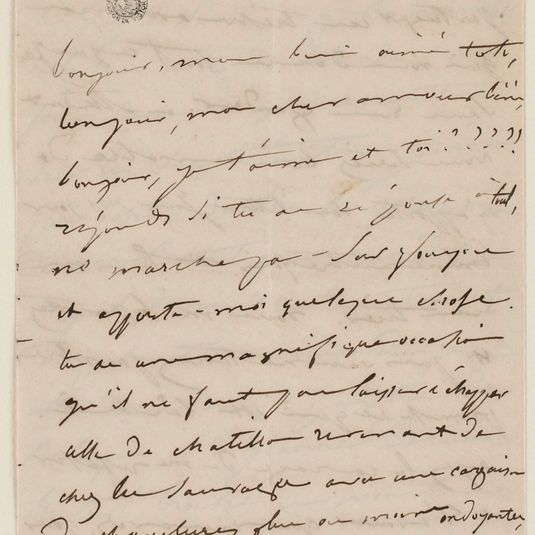 bonjour, mon bien aimé toto,
bonjour, mon cher amour béni,
bonjour, je t'aime et toi ? ? ? ? ?
réponds si tu as réponse à tout,
ne marche pas
et apporte-moi quelque chose.
tu as une magnifique occasion
qu'il ne faut pas laisser échapper
celle de chatillon revenant de
chez les sauvages avec une cargaison
de chevelures plus ou moins ondoyantes,